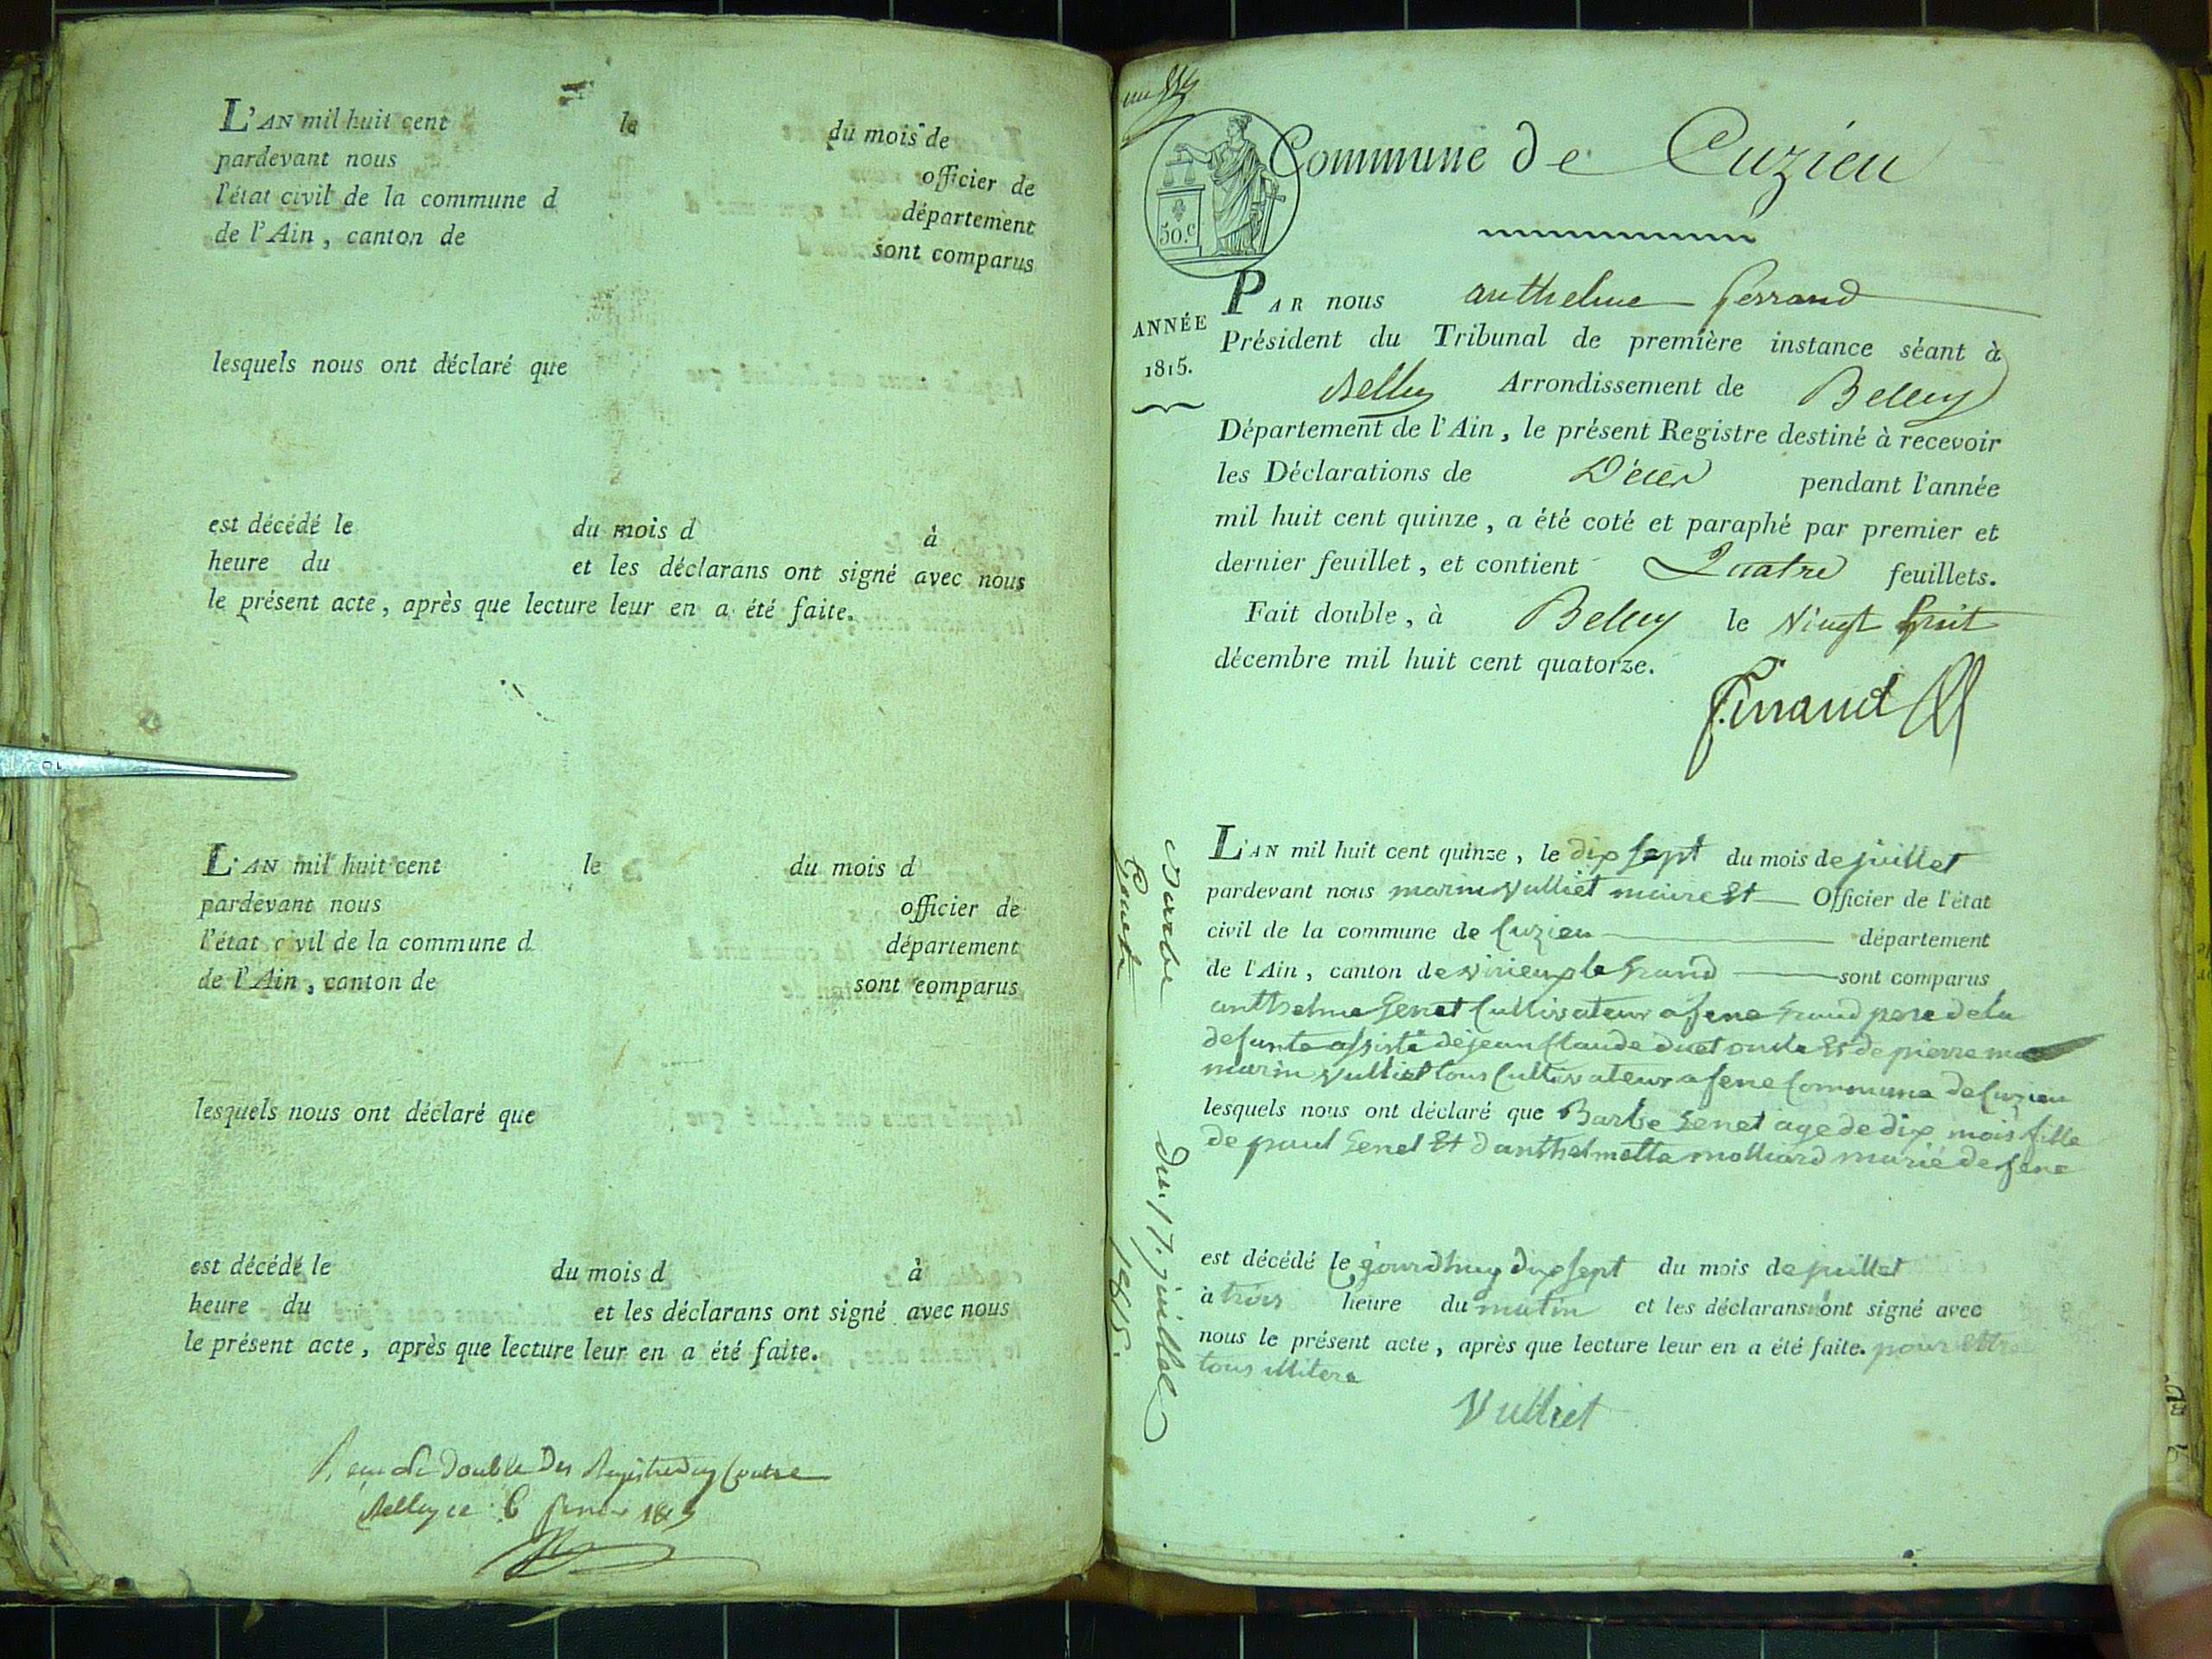 L'AN mil huit cent le du mois de
pardevant nous officier de
l'état civil de la commune d département
de l'Ain, canton de sont comparus
lesquels nous ont déclaré que
est décédé le du mois d à
heure du et les déclarans ont signé avec nous
le présent acte, après que lecture leur en a été faite.
L'AN mil huit cent le du mois d
pardevant nous officier de
l'état civil de la commune d département
de l'Ain, canton de sont comparus
lesquels nous ont déclaré que
est décédé le du mois d à
heure du et les déclarans ont signé avec nous
le présent acte, après que lecture leur en a été faite.
double Des
Belley ce 6
Commune de Cuzieu
50.c
ANNÉE
1815.
PAR nous anthelme ferrand
Président du Tribunal de première instance séant à
Belley Arrondissement de Belley
Département de l'Ain, le présent Registre destiné à recevoir
les Déclarations de Décès pendant l'année
mil huit cent quinze, a été coté et paraphé par premier et
dernier feuillet, et contient Quatre feuillets.
Fait double, à Belley le Vingt huit
décembre mil huit cent quatorze.
Ferrand
Barbe
Genet
du 17. juillet
1815.
L'AN mil huit cent quinze, le dix sept du mois de juillet
pardevant nous marin Vulliet maire Et Officier de l'état
civil de la commune de Cuzieu département
de l'Ain, canton de virieux le Grand sont comparus
anthelme Genet Cultivateur a fene Grand pere de la
defunte assisté de jean Claude duet oncle Et de pierre
marin Vulliet tous Cultivateur a fene Commune de Cuzieu
lesquels nous ont déclaré que Barbe Genet age de dix mois fille
de paul Genet Et d'anthelmette molliard marié de fene
est décédé le gourdhuy dix sept du mois de juillet
à trois heure du matin et les déclarans n'ont signé avec
nous le présent acte, après que lecture leur en a été faite. pour Etre
tous illitere
Vulliet